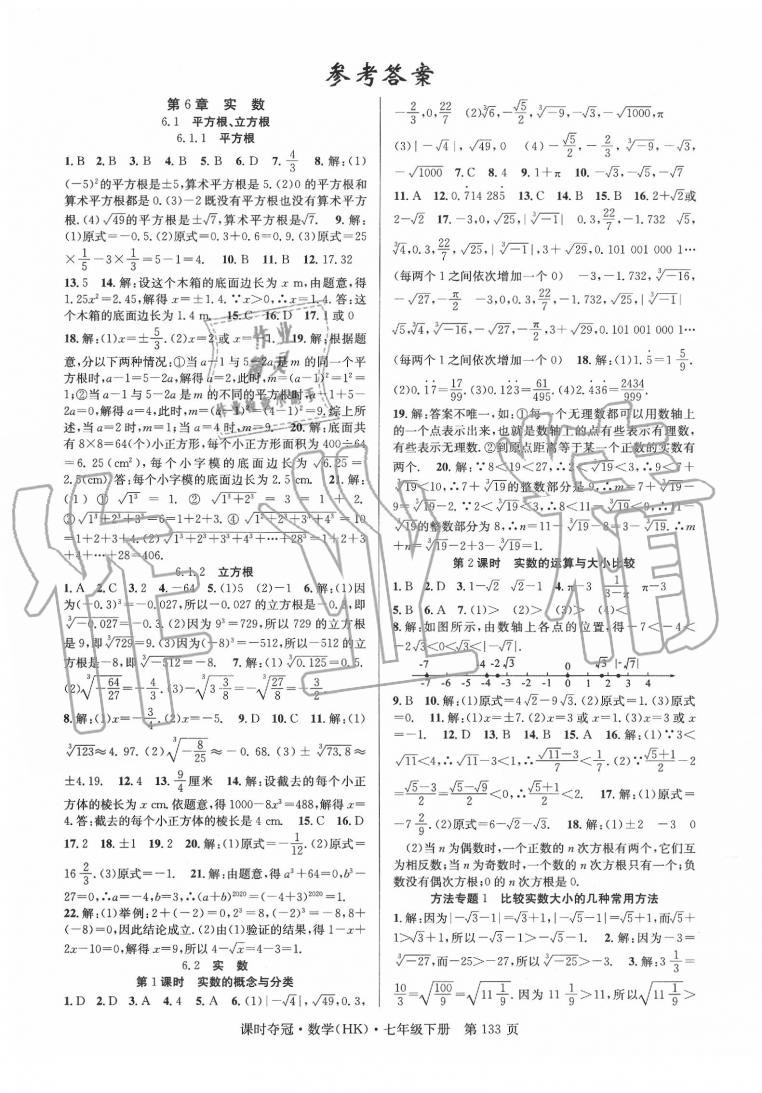 参考答案
第6章 实 数
6.1 平方根、立方根
6.1.1 平方根
1.B 2.B 3.B 4.B 5.B 6.D 7.4/3 8.解:(1)
(-5)²的平方根是±5,算术平方根是5.(2)0的平方根和
算术平方根都是0.(3)-2既没有平方根也没有算术平方
根.(4)√49的平方根是±√7,算术平方根是√7. 9.解:
(1)原式=-0.5.(2)原式=0.3+0.6=0.9.(3)原式=25
×1/5-3×1/3=5-1=4. 10.B 11.B 12.17.32
13.5 14.解:设这个木箱的底面边长为x m,由题意,得
1.25x²=2.45,解得x=±1.4.∵x>0,∴x=1.4.答:这
个木箱的底面边长为1.4 m. 15.C 16.D 17.1或0
18.解:(1)x=±5/3.(2)x=2或x=-1. 19.解:根据题
意,分以下两种情况:①当a-1与5-2a是m的同一个平
方根时,a-1=5-2a,解得a=2,此时,m=(a-1)²=1²=
1;②当a-1与5-2a是m的不同的平方根时,a-1+5-
2a=0,解得a=4,此时,m=(a-1)²=(4-1)²=9.综上所
述,当a=2时,m=1;当a=4时,m=9. 20.解:底面共
有8×8=64(个)小正方形,每个小正方形面积为400÷64
=6.25(cm²),每个小字模的底面边长为√6.25=
2.5(cm).答:每个字模的底面边长为2.5 cm. 21.解:
(1)①√1³=1.②√1³+2³=3=1+2.
③√1³+2³+3³=6=1+2+3.④√1³+2³+3³+4³=10
=1+2+3+4.(2)√1³+2³+3³+4³+…+28³=1+2+3
+4+…+28=406.
6.1.2 立方根
1.A 2.C 3.2 4.-64 5.(1)5 (2)-1 6.解:(1)因
为(-0.3)³=-0.027,所以-0.027的立方根是-0.3,即
∛-0.027=-0.3.(2)因为9³=729,所以729的立方根
是9,即∛729=9.(3)因为(-8)³=-512,所以-512的立
方根是-8,即∛-512=-8. 7.解:(1)∛0.125=0.5.
(2)∛-64/27=-4/3.(3)-∛3 3/8=-∛27/8=-3/2.
8.解:(1)x=-3/4.(2)x=-5. 9.D 10.C 11.解:(1)
∛123≈4.97.(2)∛-8/25≈-0.68.(3)±∛73.8≈
±4.19. 12.4 13.9/4厘米 14.解:设截去的每个小正
方体的棱长为x cm.依题意,得1000-8x³=488,解得x=
4.答:截去的每个小正方体的棱长是4 cm. 15.C 16.D
17.2 18.±1 19.2 20.解:(1)原式=-1/12.(2)原式=
16 2/3.(3)原式=-1. 21.解:由题意,得a³+64=0,b³-
27=0,∴a=-4,b=3,∴(a+b)²⁰²⁰=(-4+3)²⁰²⁰=1.
22.解:(1)举例:2+(-2)=0,2³=8,(-2)³=-8,8+
(-8)=0,因此结论成立.(2)由(1)验证的结果,得1-x+
2x-10=0,解得x=9.所以1-√x=4-3=1.
6.2 实 数
第1课时 实数的概念与分类
1.D 2.D 3.A 4.4 5.A 6.(1)|-√4|,√49,0.3,
-2/3,0,22/7 (2)∛6,-√5/2,∛-9,-√3,-√1000,π
(3)|-√4|,√49,0 (4)-√5/2,∛-9,-√3,
-√1000 7.C 8.4 9.1+π 10.-√3,-√5,-√7
11.A 12.0.714 285 13.C 14.B 15.B 16.2+√2或
2-√2 17.-3,0,√25,|∛-1| 0.3,22/7,-1.732 √5,
∛4,0.3,22/7,√25,|∛-1|,3+0.101 001 000 1…
(每两个1之间依次增加一个0) -3,-1.732,∛-16,
-√7,-π/2 -3,0,0.3,22/7,-1.732,√25,|∛-1|
√5,∛4,∛-16,-√7,-π/2,3+0.101 001 000 1…
(每两个1之间依次增加一个0) 18.解:(1)1.5̇=1 5/9.
(2)0.1̇7̇=17/99.(3)0.1̇23̇=61/495.(4)2.4̇36̇=2434/999.
19.解:答案不唯一,如:①每一个无理数都可以用数轴上
的一个点表示出来,也就是数轴上的点有些表示有理数,
有些表示无理数.②到原点距离等于某一个正数的实数有
两个. 20.解:∵8<19<27,∴2<∛19<3,∴9<7+
∛19<10,∴7+∛19的整数部分是9,∴m=7+∛19-
9=∛19-2.∵2<∛19<3,∴8<11-∛19<9,∴11-
∛19的整数部分为8,∴n=11-∛19-8=3-∛19.∴m
+n=∛19-2+3-∛19=1.
第2课时 实数的运算与大小比较
1.B 2.D 3.1-√2 √2-1 4.π-3 1/(3-π) π-3
5.B 6.A 7.(1)> (2)> (3)< (4)>
8.解:如图所示,由数轴上各点的位置,得-7<-4<
-2√3<0<√3<|-√7|.
-7 -4 -2√3 √3 |-√7|
-7 -6 -5 -4 -3 -2 -1 0 1 2 3 4
9.B 10.解:(1)原式=4√2-9√3.(2)原式=1.(3)原式
=0. 11.解:(1)x=±7.(2)x=3或x=1.(3)x=3或x
=-1. 12.D 13.B 14.A 15.A 16.解:(1)∵3<
√11<4,∴√11-3<1,∴(√11-3)/7<1/7.(2)∵(√5+1)/2-2
=(√5-3)/2=(√5-√9)/2<0,∴(√5+1)/2<2. 17.解:(1)原式=
-7 2/9.(2)原式=6-√2-√3. 18.解:(1)±2 -3 0
(2)当n为偶数时,一个正数的n次方根有两个,它们互
为相反数;当n为奇数时,一个数的n次方根只有一个;负
数没有偶次方根;0的n次方根是0.
方法专题1 比较实数大小的几种常用方法
1.解:因为|-√3-1|=√3+1,|-√5-1|=√5+1,而√5+
1>√3+1,所以-√3-1>-√5-1. 2.解:因为-3=
∛-27,而-25>-27,所以∛-25>-3. 3.解:3 1/3=
10/3=√100/9=√11 1/9. 因为11 1/9>11,所以√11 1/9>
课时夺冠·数学(HK)·七年级下册 第133页